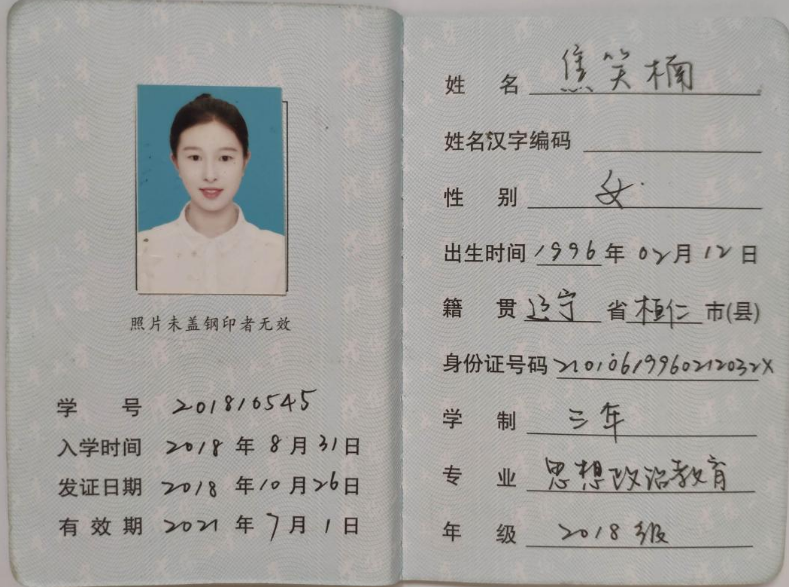 照片未盖钢印者无效
学 号 201810545
入学时间 2018 年 8 月 31 日
发证日期 2018 年 10 月 26 日
有效期 2021 年 7 月 1 日
姓 名 焦笑楠
姓名汉字编码
性 别 女
出生时间 1996 年 02 月 12 日
籍 贯 辽宁 省 桓仁 市(县)
身份证号码 21010619960212032X
学 制 三年
专 业 思想政治教育
年 级 2018 级